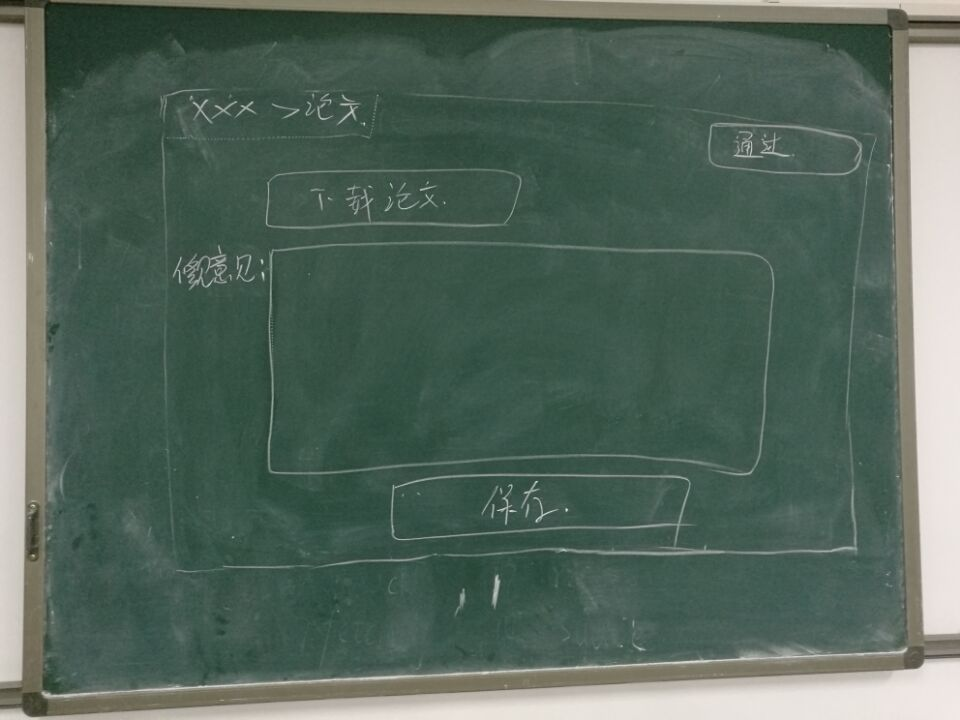 XXX > 论文
通过
下载论文
修改意见:
保存